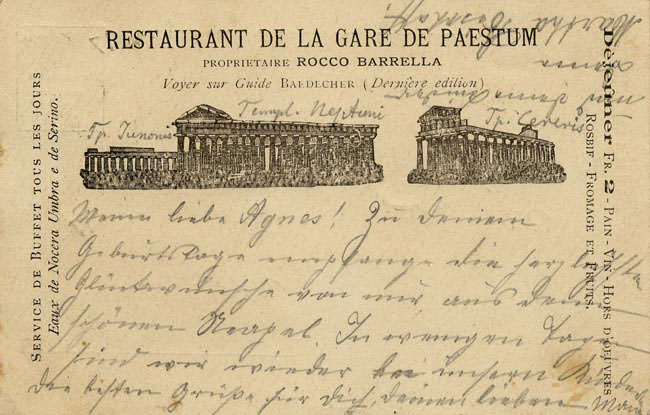 RESTAURANT DE LA GARE DE PAESTUM
PROPRIETAIRE ROCCO BARRELLA
Voyer sur Guide BAEDECHER (Dernière edition)
SERVICE DE BUFFET TOUS LES JOURS
Eaux de Nocera Umbra e de Serino.
Déjeuner FR. 2 - PAIN - VIN - HORS D'OEUVRES
ROSBIF - FROMAGE ET FRUITS.
Tp. Junonis
Templ. Neptuni
Tp. Cereris
Meine liebe Agnes! Zu deinem
Geburtstage empfange die herzlichsten
Glückwünsche von mir aus dem
schönen Neapel. In wenigen Tagen
sind wir wieder bei unsern
Die besten Grüße für Dich, deinen lieben
Martha